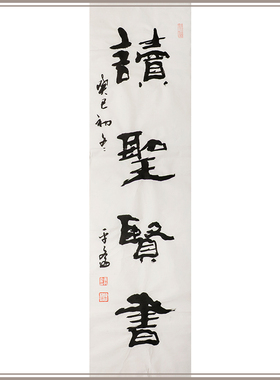 讀聖賢書
癸巳初冬